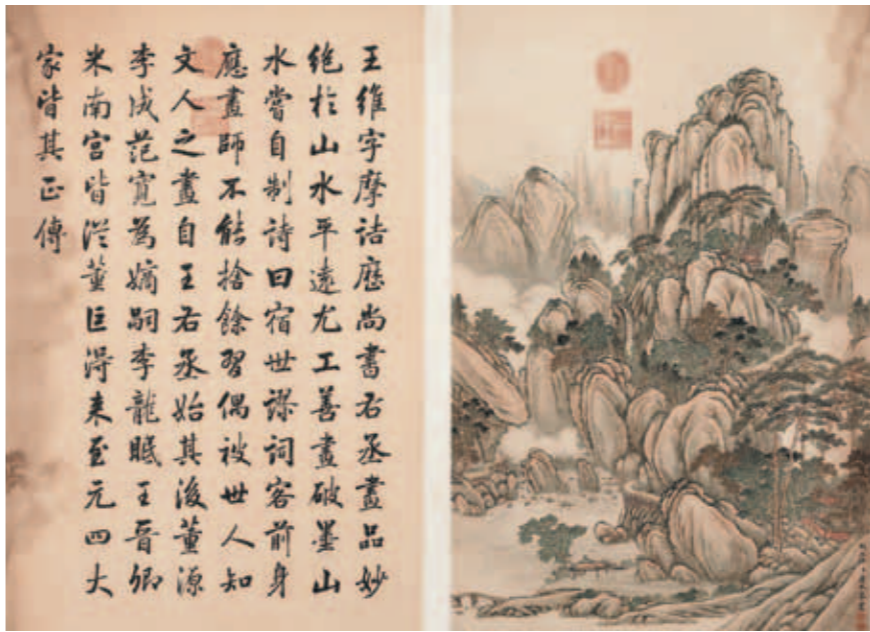 王維字摩詰應尚書右丞畫品妙
絶於山水平遠尤工善畫破墨山
水嘗自制詩曰宿世謬詞客前身
應畫師不能捨餘習偶被世人知
文人之畫自王右丞始其後董源
李成范寬為嫡嗣李龍眠王晉卿
米南宮皆從董巨得来至元四大
家皆其正傳